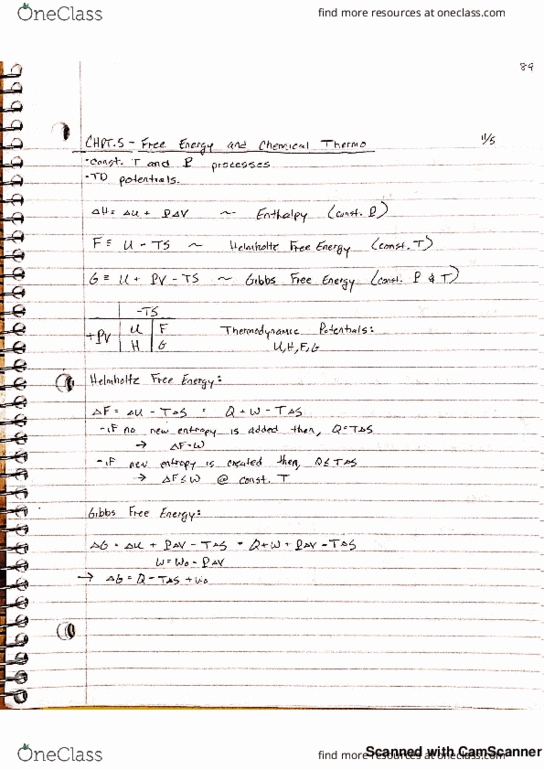 OneClass
find more resources at oneclass.com
89
CHPT.5 - Free Energy and Chemical Thermo 11/5
· Const. T and P processes
· TD potentials.
ΔH = ΔU + PΔV ~ Enthalpy (const. P)
F ≡ U - TS ~ Helmholtz Free Energy (const. T)
G ≡ U + PV - TS ~ Gibbs Free Energy (const. P & T)
-TS
+PV U F Thermodynamic Potentials:
H G U,H,F,G
Helmholtz Free Energy:
ΔF = ΔU - TΔS = Q + W - TΔS
- if no new entropy is added then, Q = TΔS
→ ΔF = W
- if new entropy is created then, Q ≤ TΔS
→ ΔF ≤ W @ const. T
Gibbs Free Energy:
ΔG = ΔU + PΔV - TΔS = Q + W + PΔV - TΔS
W = Wo - PΔV
→ ΔG = Q - TΔS + Wo
OneClass
find more resources at oneclass.com
Scanned with CamScanner